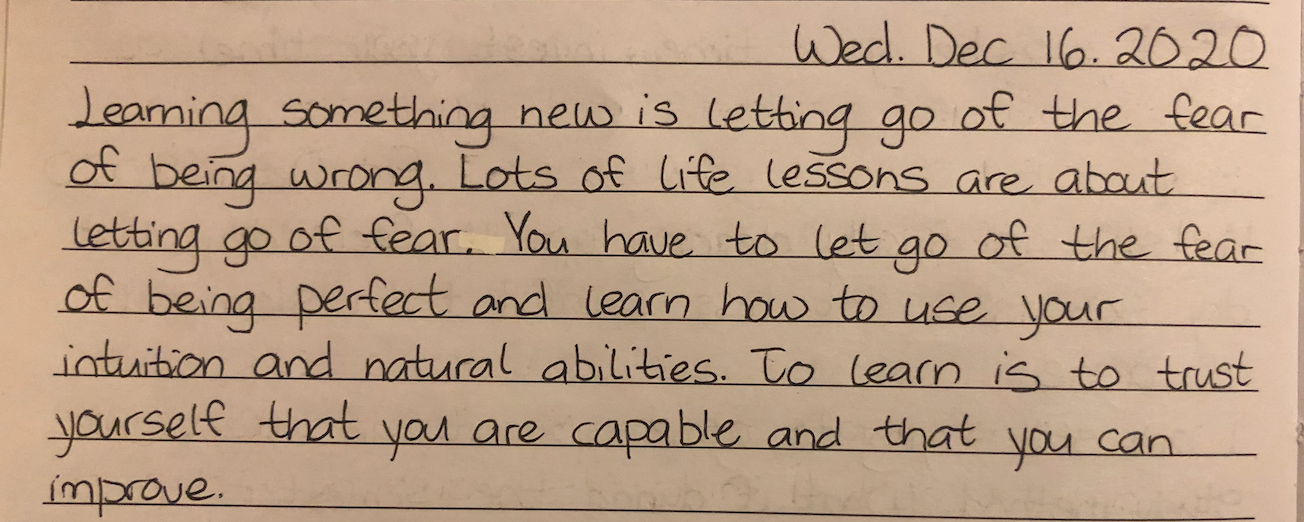 Wed. Dec 16. 2020
Learning something new is letting go of the fear
of being wrong. Lots of life lessons are about
letting go of fear. You have to let go of the fear
of being perfect and learn how to use your
intuition and natural abilities. To learn is to trust
yourself that you are capable and that you can
improve.